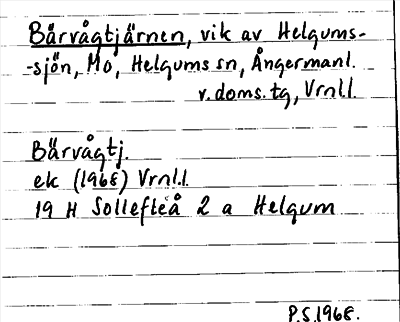 Bärvågtjärnen, vik av Helgums-
-sjön, Mo, Helgums sn, Ångermanl.
v. doms. tg, Vrnl.l.
Bärvågtj.
ek (1968) Vrnl.l.
19 H Sollefteå 2 a Helgum
P.S. 1968.